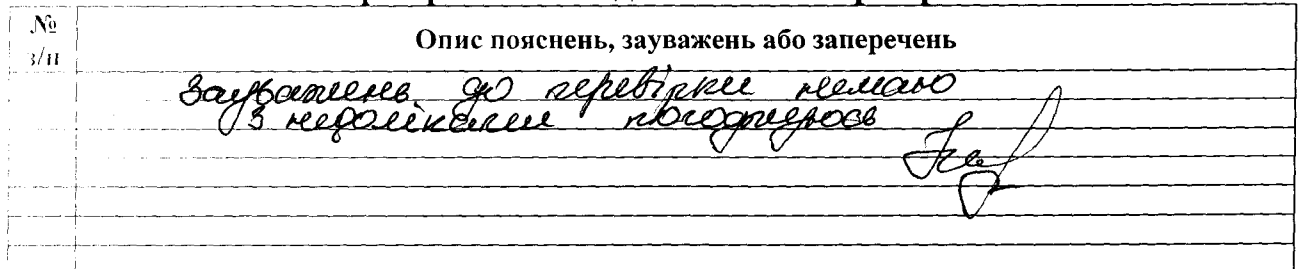 №
з/п
Опис пояснень, зауважень або заперечень
Зауважень до перевірки немаю
З недоліками погоджуюсь